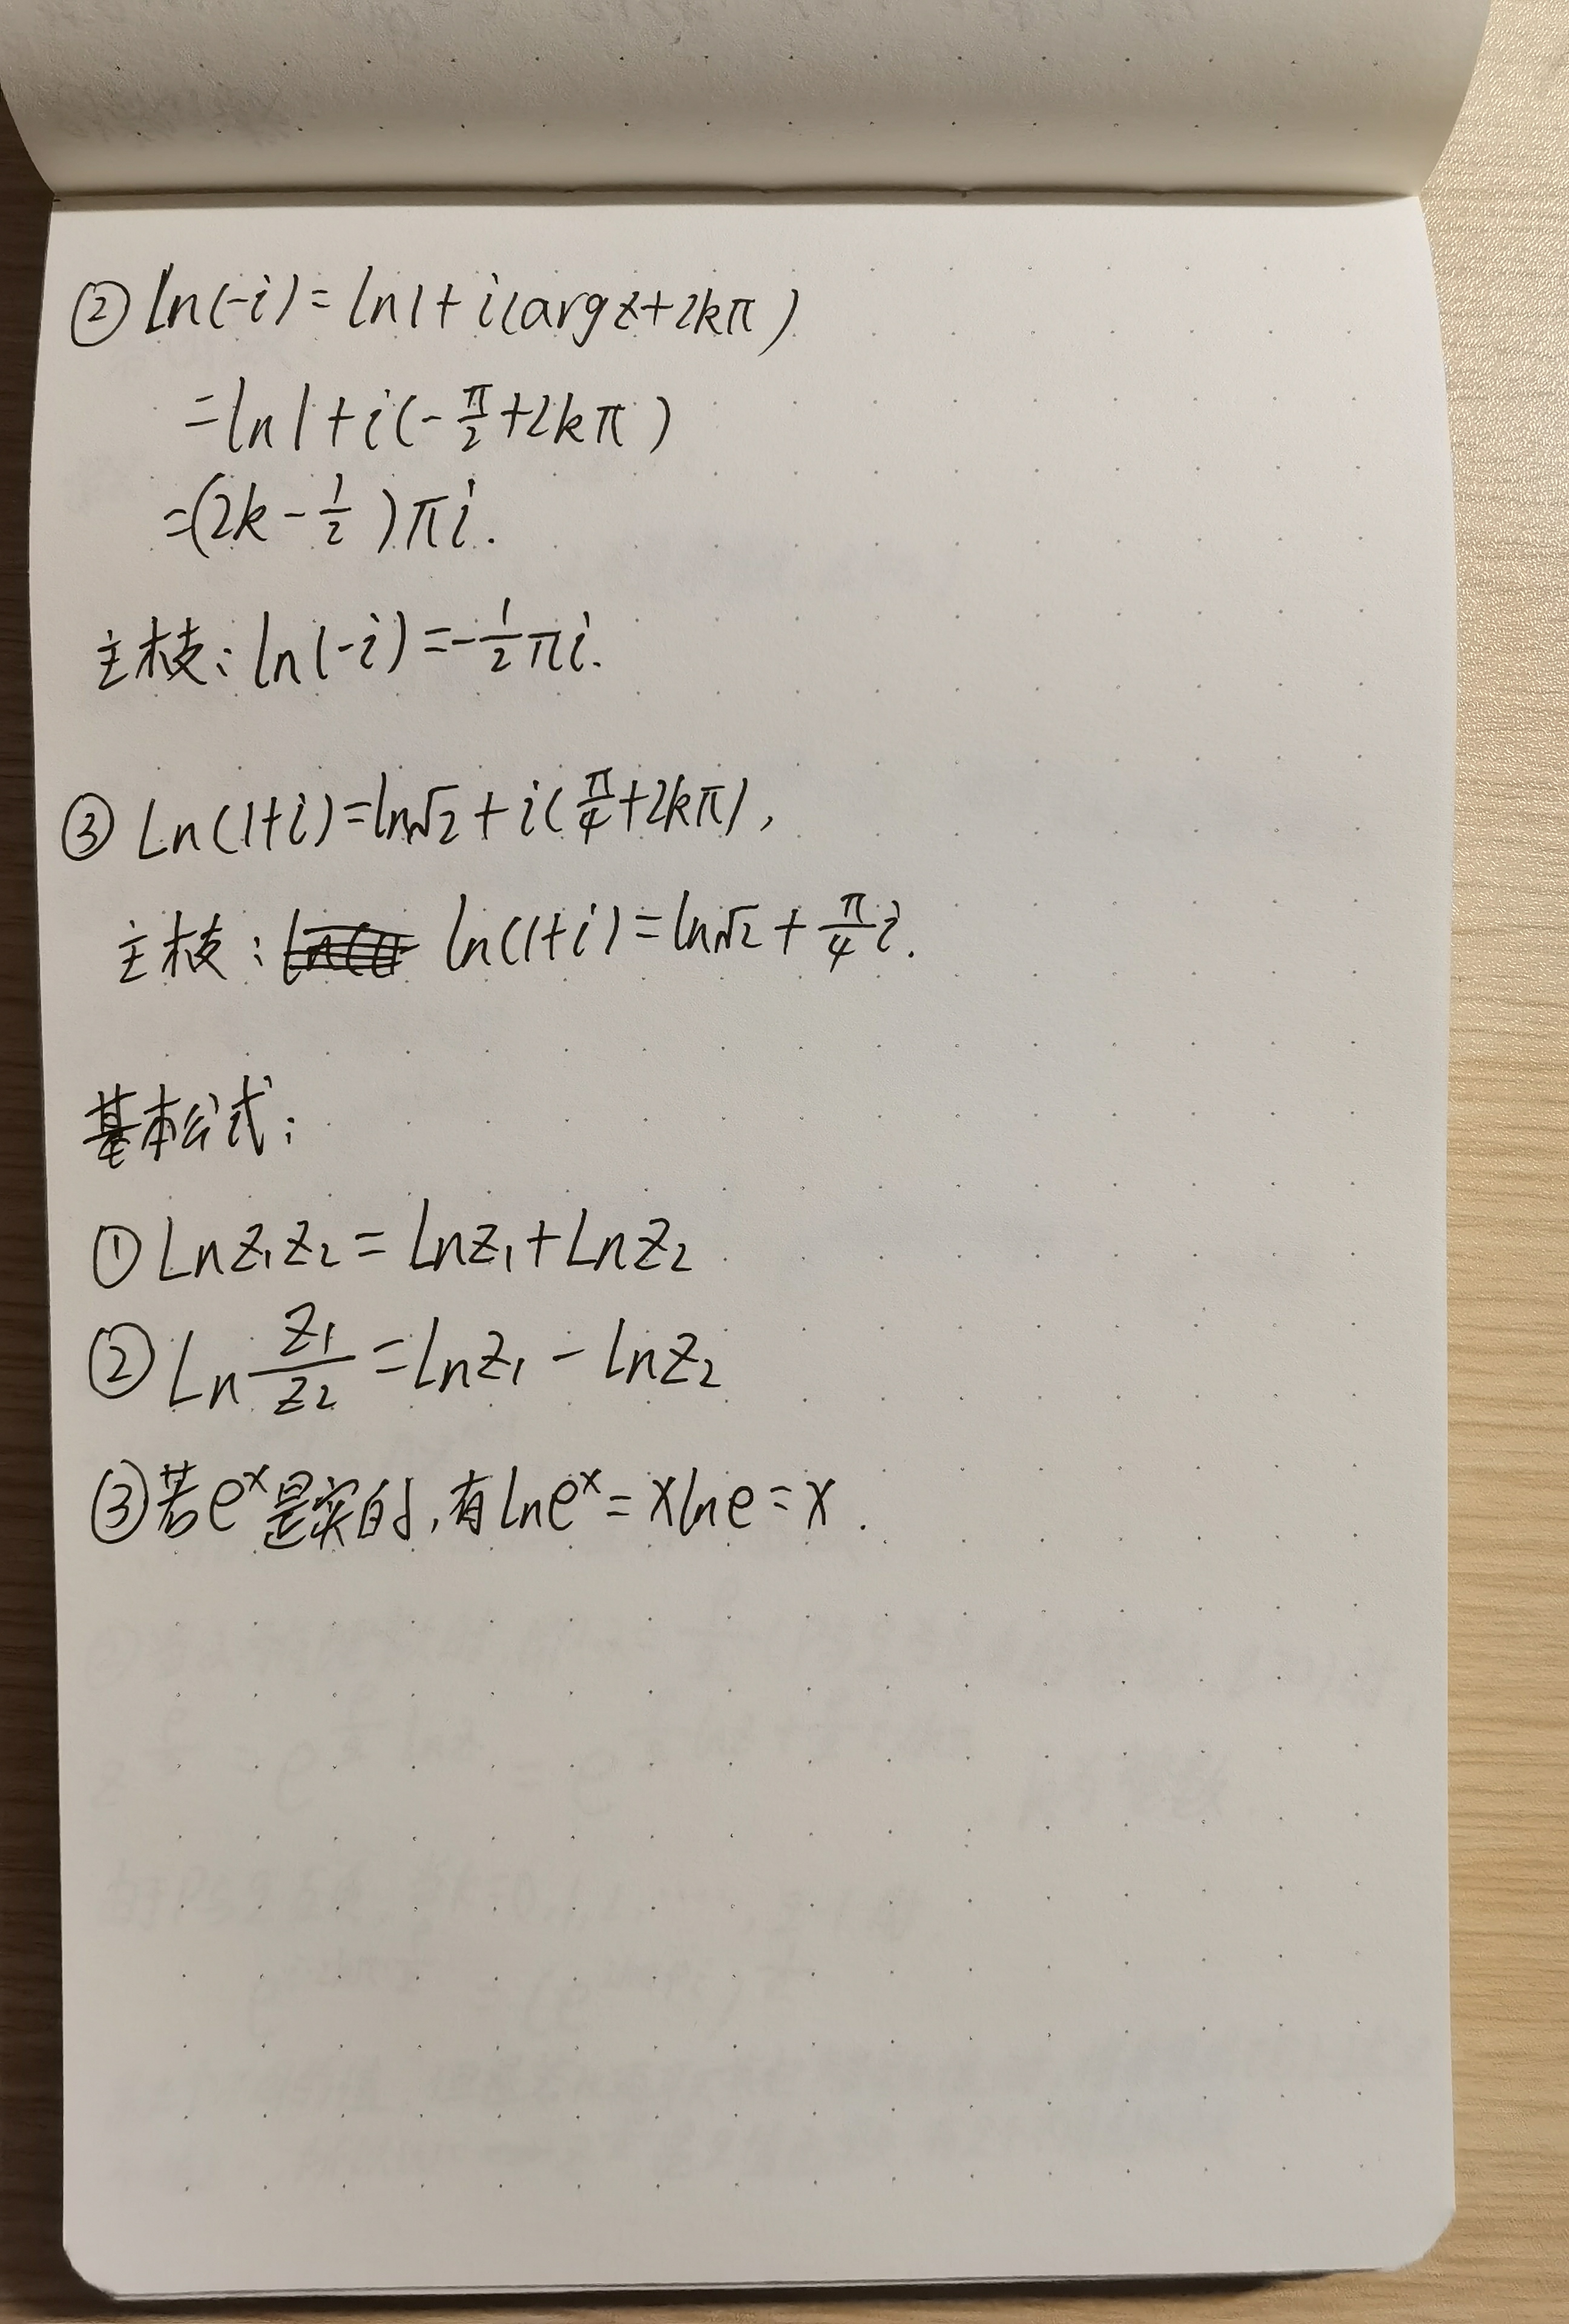 ② ln(-i)=ln1+i(argz+2kπ)
=ln1+i(-π/2+2kπ)
=(2k-1/2)πi.
主枝:ln(-i)=-1/2πi.
③ Ln(1+i)=ln√2+i(π/4+2kπ),
主枝: ln(1+i)=ln√2+π/4i.
基本公式:
① Lnz₁z₂=Lnz₁+Lnz₂
② Ln z₁/z₂=Lnz₁-lnz₂
③ 若eˣ是实的,有lneˣ=xlne=x.